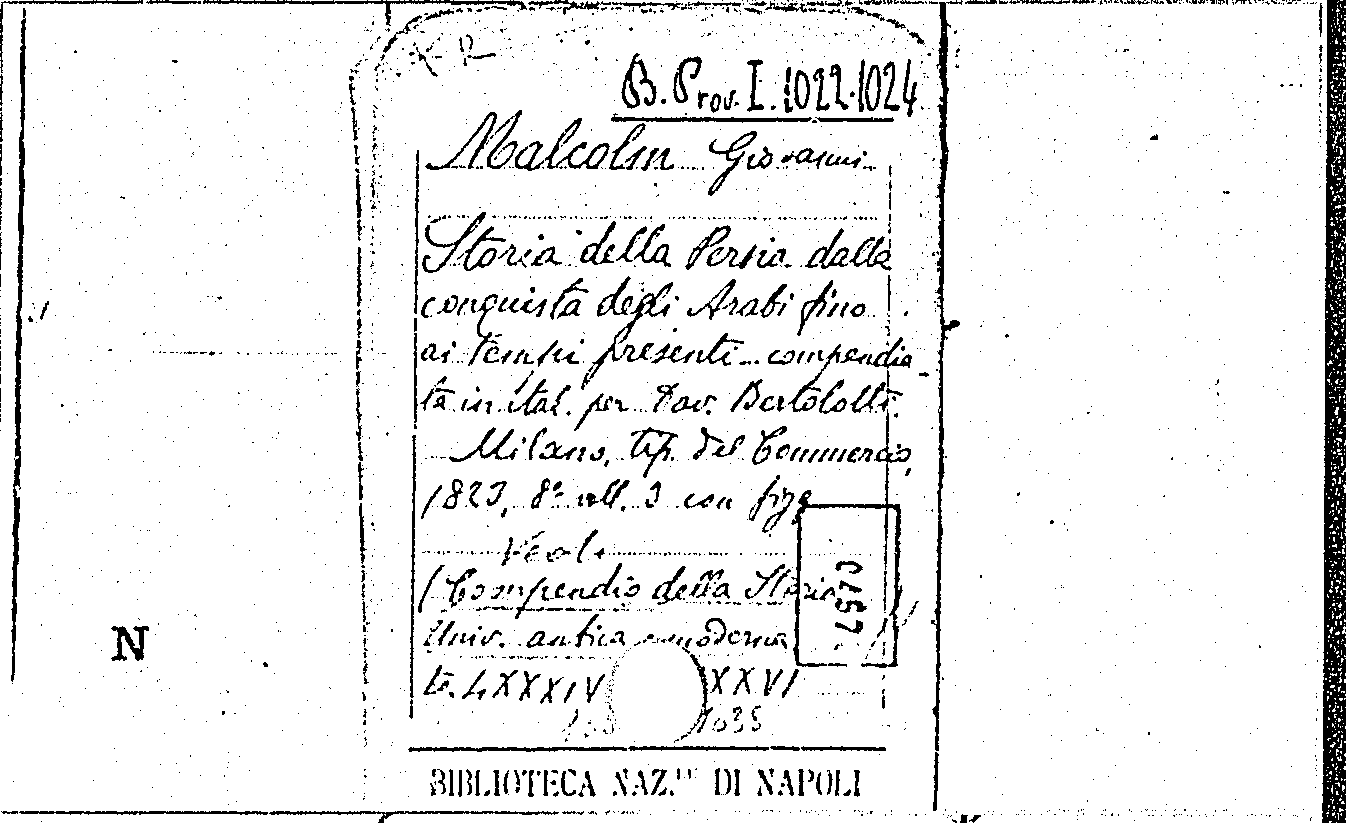 B. Prov. I. 1022-1024
Malcolm Giovanni
Storia della Persia dalla
conquista degli Arabi fino
ai tempi presenti compendia-
ta in ital. per Dav. Bertolotti.
Milano, tip. del Commercio,
1823, 8° voll. 3 con fig.
(Compendio della Storia
Univ. antica e moderna
to. LXXXIV XXVI
1035
N
BIBLIOTECA NAZ.le DI NAPOLI